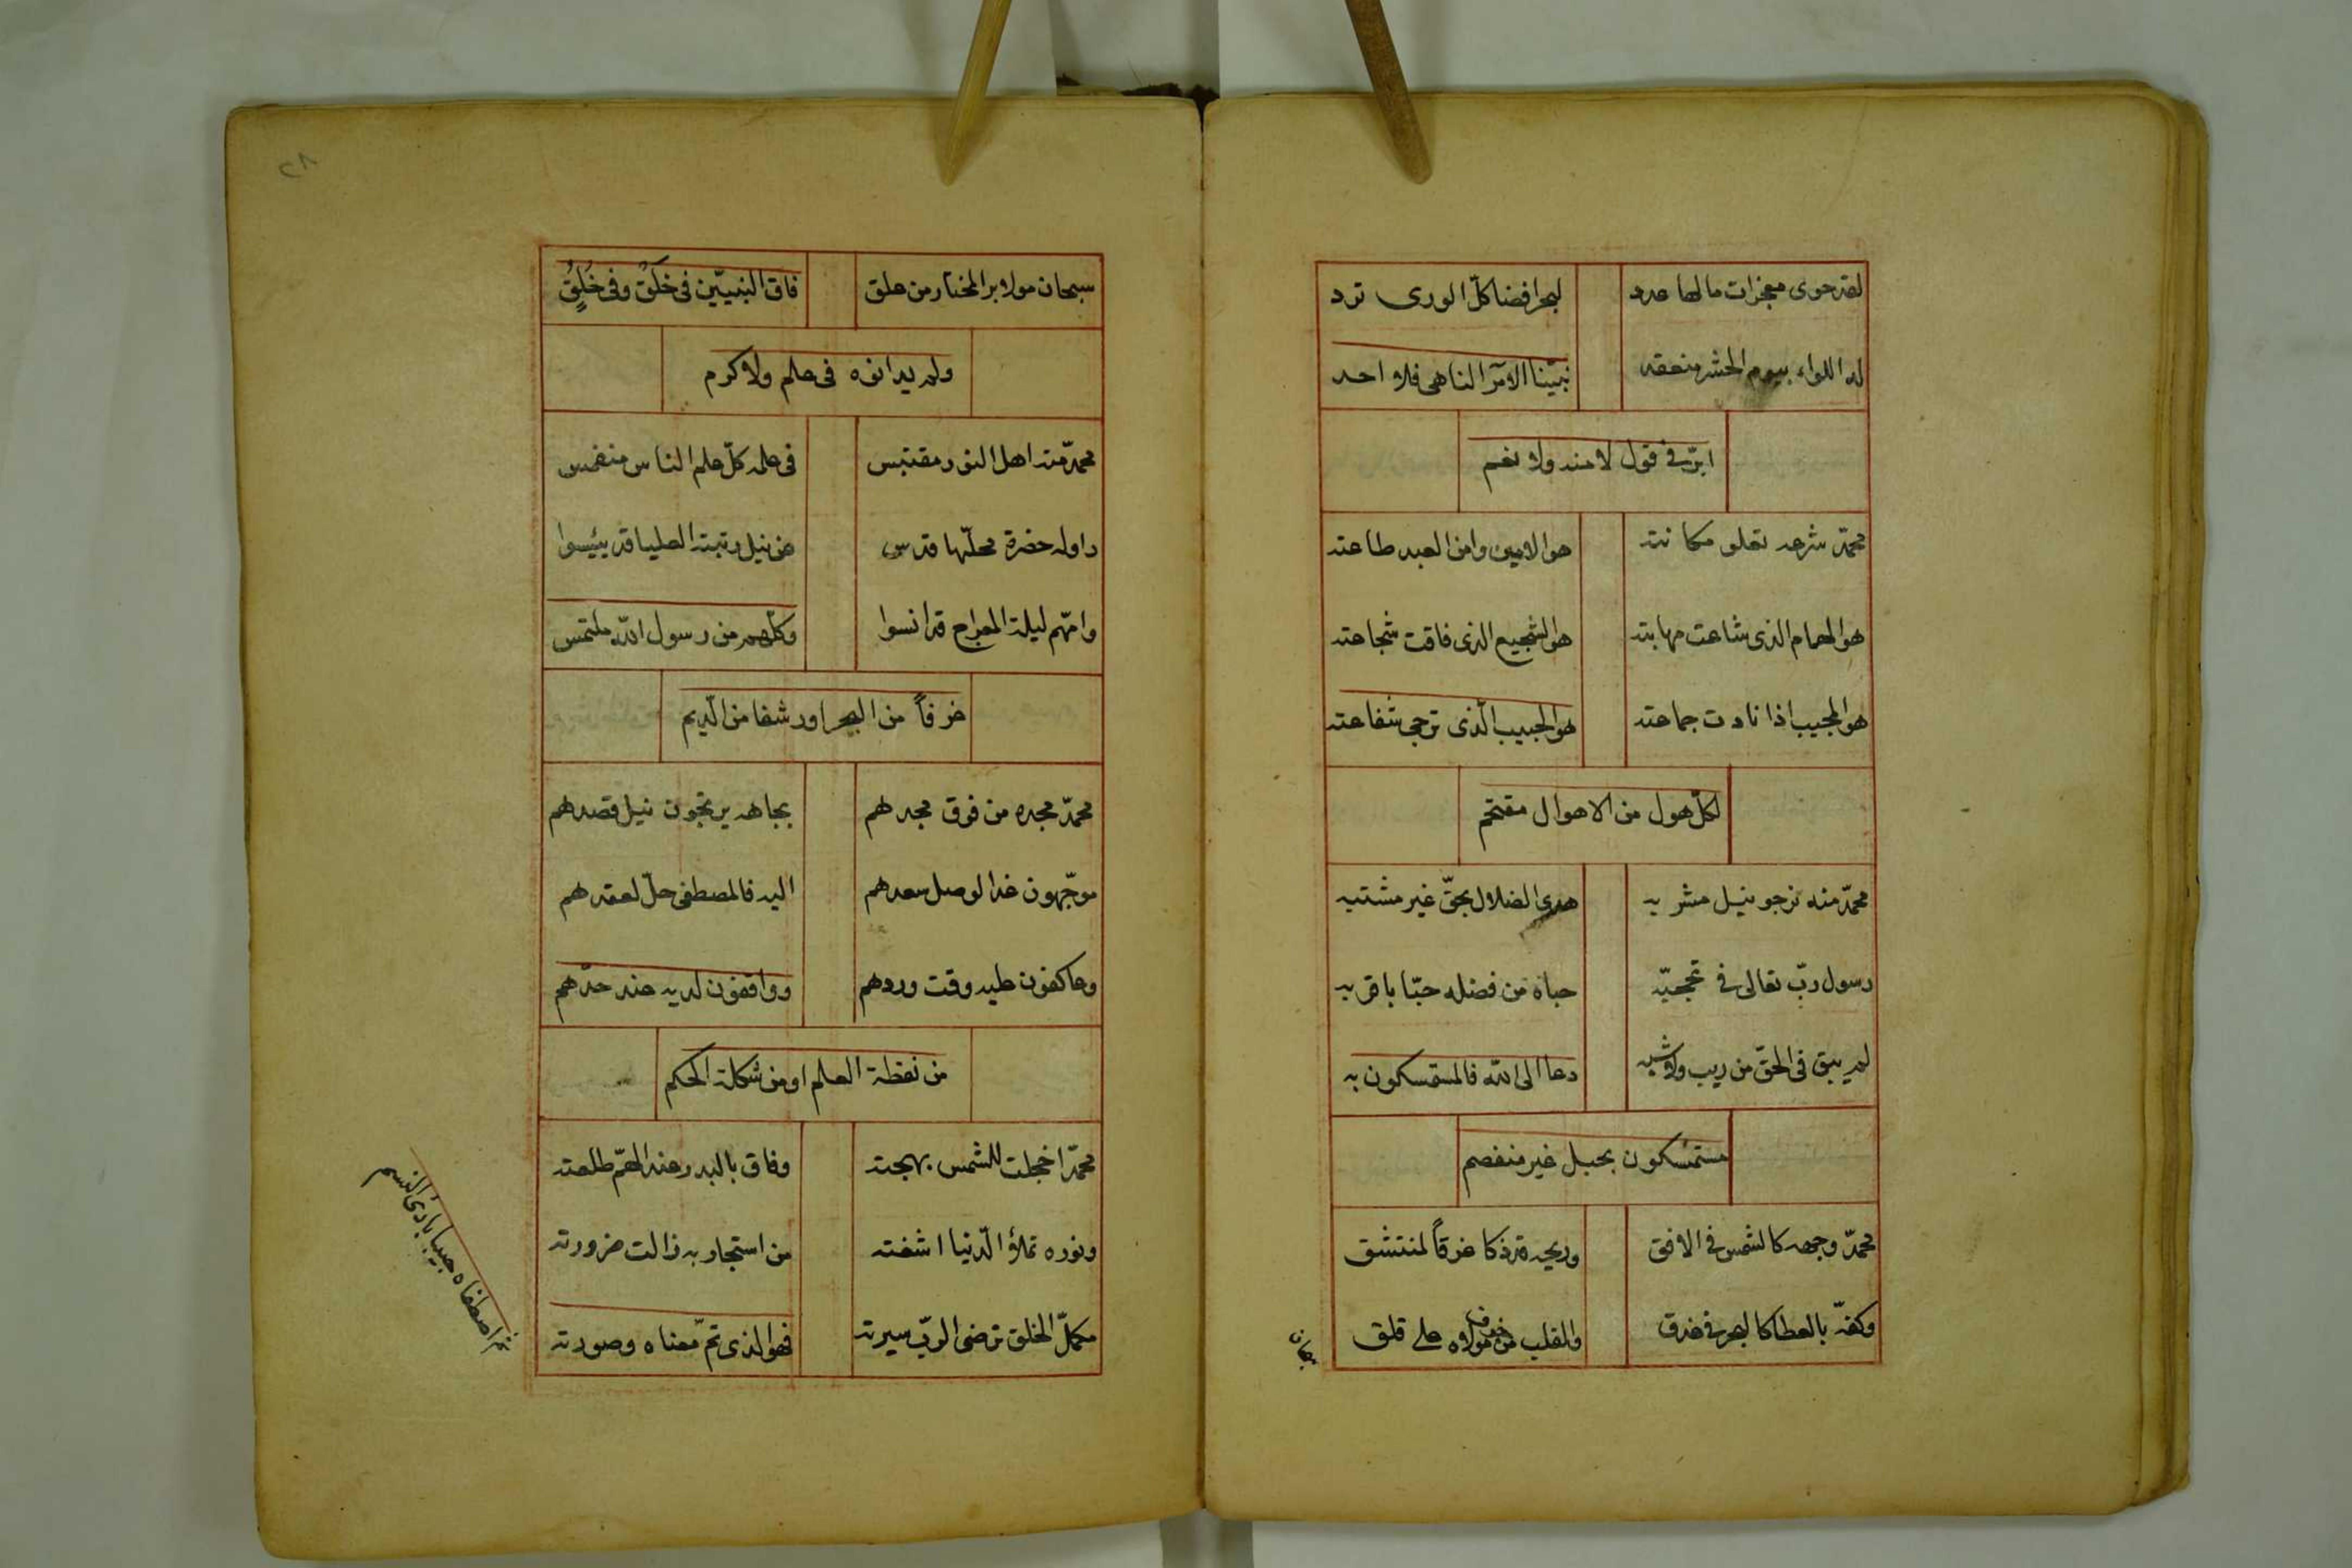 لقد حوى معجزات مالها عدد لبحر افضا كلّ الورى ترد
له اللواء بيوم الحشر منعقد نبيّنا الآمر الناهى فلا احد
ابرّ فى قول لا منه ولا نعم
محمّد شرعه تعلو مكانته هو الامين وامن العبد طاعته
هو الهمام الذى شاعت مهابته هو الشجيع الذى فاقت شجاعته
هو المجيب اذا نادت جماعته هو الحبيب الّذى ترجى شفاعته
لكلّ هول من الاهوال مقتحم
محمّد منه نرجو نيل مشربه هدى الضلال بحقّ غير مشتبه
رسول ربّ تعالى فى تحجبّه حباه من فضله حبّا باقربه
لم يبق فى الحقّ من ريب ولا شبه دعا الى الله فالمستمسكون به
مستمسكون بحبل غير منفصم
محمّد وجهه كالشمس فى الافق وريحه قد ذكا عرقاً لمنتشق
وكفّه بالعطا كالبحر فى غدق والقلب من خوف مولاه على قلق
سبحان
٢٨
سبحان مولا برا المختار من علق فاق النبيّين فى خَلَقٍ وفى خُلُقٍ
ولم يدانوه فى علم ولا كرم
محمّد منه اهل النور مقتبس فى علمه كلّ علم الناس منغمس
داوله حضرة محلّها قدس عن نيل رتبته العليا قد يئيسوا
وامّهم ليلة المعراج قد انسوا وكلّهم من رسول الله ملتمس
غرفاً من البحر او رشفا من الّديم
محمّد مجده من فوق مجدهم بجاهه يرتجون نيل قصدهم
موجّهون غدا لوصل سعدهم اليه فالمصطفى حلّ لعقدهم
وعاكفون عليه وقت وردهم وواقفون لديه عند حدّهم
من نقطة العلم او من شكلة الحكم
محمّد اخجلت للشمس بهجته وفاق بالبدر عند الّتمّ طلعته
ونوره تملؤ الّدنيا اشعته من استجار به زالت ضرورته
مكمّل الخلق ترضى الربّ سيرته فهو الذى تمّ معناه وصورته
ثم اصطفاه حبيبا بارئ النسم